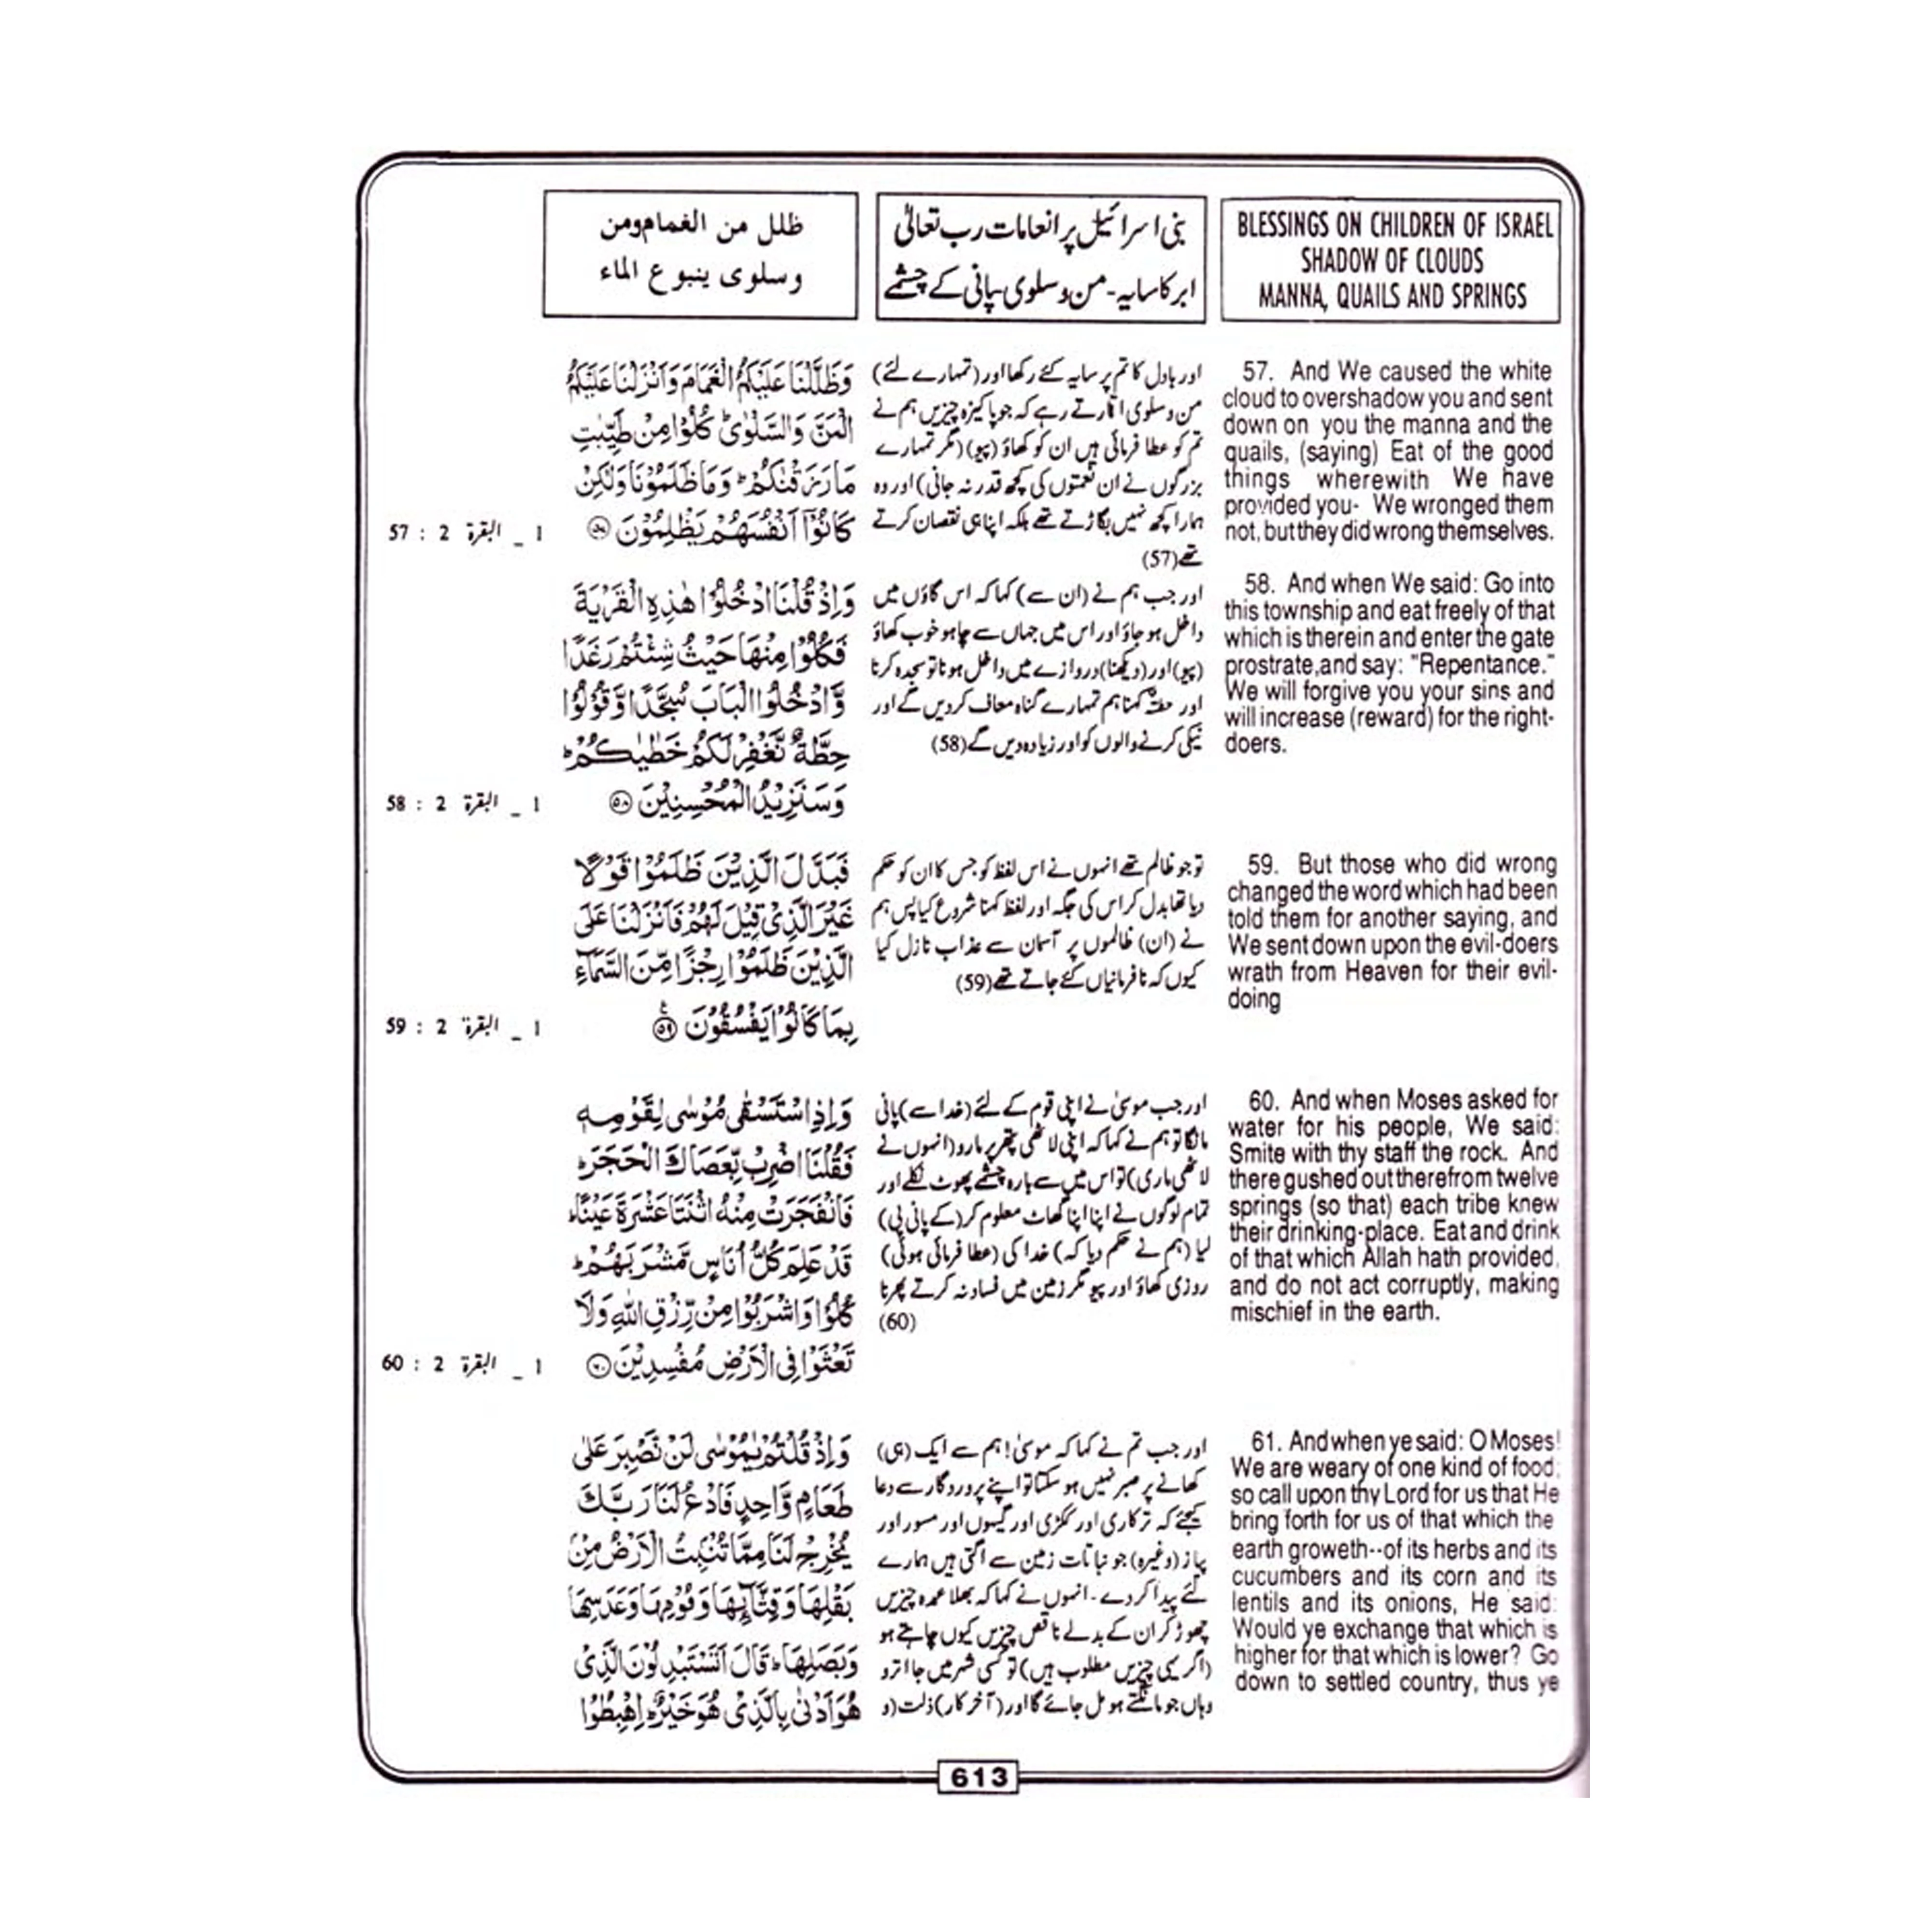 BLESSINGS ON CHILDREN OF ISRAEL
SHADOW OF CLOUDS
MANNA, QUAILS AND SPRINGS
بنی اسرائیل پر انعامات رب تعالیٰ
ابر کا سایہ - من و سلوی پانی کے چشمے
ظلل من الغمام ومن
وسلوى ينبوع الماء
57. And We caused the white
cloud to overshadow you and sent
down on you the manna and the
quails, (saying) Eat of the good
things wherewith We have
provided you- We wronged them
not, but they did wrong themselves.
58. And when We said: Go into
this township and eat freely of that
which is therein and enter the gate
prostrate,and say: "Repentance."
We will forgive you your sins and
will increase (reward) for the right-
doers.
59. But those who did wrong
changed the word which had been
told them for another saying, and
We sent down upon the evil-doers
wrath from Heaven for their evil-
doing
60. And when Moses asked for
water for his people, We said:
Smite with thy staff the rock. And
there gushed out therefrom twelve
springs (so that) each tribe knew
their drinking-place. Eat and drink
of that which Allah hath provided,
and do not act corruptly, making
mischief in the earth.
61. And when ye said: O Moses!
We are weary of one kind of food;
so call upon thy Lord for us that He
bring forth for us of that which the
earth groweth--of its herbs and its
cucumbers and its corn and its
lentils and its onions, He said:
Would ye exchange that which is
higher for that which is lower? Go
down to settled country, thus ye
اور بادل کا تم پر سایہ کئے رکھا اور (تمہارے لئے)
من و سلوی اتارتے رہے کہ جو پاکیزہ چیزیں ہم نے
تم کو عطا فرمائی ہیں ان کو کھاؤ (پیو) (مگر تمہارے
بزرگوں نے ان نعمتوں کی کچھ قدر نہ جانی) اور وہ
ہمارا کچھ نہیں بگاڑتے تھے بلکہ اپنا ہی نقصان کرتے
تھے (57)
اور جب ہم نے (ان سے) کہا کہ اس گاؤں میں
داخل ہو جاؤ اور اس میں جہاں سے چاہو خوب کھاؤ
(پیو) اور (دیکھنا) دروازے میں داخل ہونا تو سجدہ کرنا
اور حطۃ کہنا ہم تمہارے گناہ معاف کر دیں گے اور
نیکی کرنے والوں کو اور زیادہ دیں گے (58)
تو جو ظالم تھے انہوں نے اس لفظ کو جس کا ان کو حکم
دیا تھا بدل کر اس کی جگہ اور لفظ کہنا شروع کیا پس ہم
نے (ان) ظالموں پر آسمان سے عذاب نازل کیا
کیوں کہ نافرمانیاں کئے جاتے تھے (59)
اور جب موسیٰ نے اپنی قوم کے لئے (خدا سے) پانی
مانگا تو ہم نے کہا کہ اپنی لاٹھی پتھر پر مارو (انہوں نے
لاٹھی ماری) تو اس میں سے بارہ چشمے پھوٹ نکلے اور
تمام لوگوں نے اپنا اپنا گھاٹ معلوم کر (کے پانی پی)
لیا (ہم نے حکم دیا کہ) خدا کی (عطا فرمائی ہوئی)
روزی کھاؤ اور پیو مگر زمین میں فساد نہ کرتے پھرنا
(60)
اور جب تم نے کہا کہ موسیٰ! ہم سے ایک (ہی)
کھانے پر صبر نہیں ہو سکتا تو اپنے پروردگار سے دعا
کیجئے کہ ترکاری اور ککڑی اور گیہوں اور مسور اور
پیاز (وغیرہ) جو نباتات زمین سے اگتی ہیں ہمارے
لئے پیدا کر دے - انہوں نے کہا کہ بھلا عمدہ چیزیں
چھوڑ کر ان کے بدلے ناقص چیزیں کیوں چاہتے ہو
(اگر یہی چیزیں مطلوب ہیں) تو کسی شہر میں جا اترو
وہاں جو مانگتے ہو مل جائے گا اور (آخر کار) ذلت (و
وَظَلَّلْنَا عَلَيْكُمُ الْغَمَامَ وَاَنْزَلْنَا عَلَيْكُمُ
الْمَنَّ وَالسَّلْوٰىؕ كُلُوْا مِنْ طَيِّبٰتِ
مَا رَزَقْنٰكُمْؕ وَمَا ظَلَمُوْنَا وَلٰكِنْ
كَانُوْٓا اَنْفُسَهُمْ يَظْلِمُوْنَ ۝۵۷
1 _ البقرة 2 : 57
وَاِذْ قُلْنَا ادْخُلُوْا هٰذِهِ الْقَرْيَةَ
فَكُلُوْا مِنْهَا حَيْثُ شِئْتُمْ رَغَدًا
وَّادْخُلُوا الْبَابَ سُجَّدًا وَّقُوْلُوْا
حِطَّةٌ نَّغْفِرْ لَكُمْ خَطٰيٰكُمْؕ
وَسَنَزِيْدُ الْمُحْسِنِيْنَ ۝۵۸
1 _ البقرة 2 : 58
فَبَدَّلَ الَّذِيْنَ ظَلَمُوْا قَوْلًا
غَيْرَ الَّذِيْ قِيْلَ لَهُمْ فَاَنْزَلْنَا عَلَى
الَّذِيْنَ ظَلَمُوْا رِجْزًا مِّنَ السَّمَآءِ
بِمَا كَانُوْا يَفْسُقُوْنَ ۝۵۹
1 _ البقرة 2 : 59
وَاِذِ اسْتَسْقٰى مُوْسٰى لِقَوْمِهٖ
فَقُلْنَا اضْرِبْ بِّعَصَاكَ الْحَجَرَؕ
فَانْفَجَرَتْ مِنْهُ اثْنَتَا عَشْرَةَ عَيْنًاؕ
قَدْ عَلِمَ كُلُّ اُنَاسٍ مَّشْرَبَهُمْؕ
كُلُوْا وَاشْرَبُوْا مِنْ رِّزْقِ اللّٰهِ وَلَا
تَعْثَوْا فِى الْاَرْضِ مُفْسِدِيْنَ ۝۶۰
1 _ البقرة 2 : 60
وَاِذْ قُلْتُمْ يٰمُوْسٰى لَنْ نَّصْبِرَ عَلٰى
طَعَامٍ وَّاحِدٍ فَادْعُ لَنَا رَبَّكَ
يُخْرِجْ لَنَا مِمَّا تُنْۢبِتُ الْاَرْضُ مِنْۢ
بَقْلِهَا وَقِثَّآئِهَا وَفُوْمِهَا وَعَدَسِهَا
وَبَصَلِهَاؕ قَالَ اَتَسْتَبْدِلُوْنَ الَّذِيْ
هُوَ اَدْنٰى بِالَّذِيْ هُوَ خَيْرٌؕ اِهْبِطُوْا
613